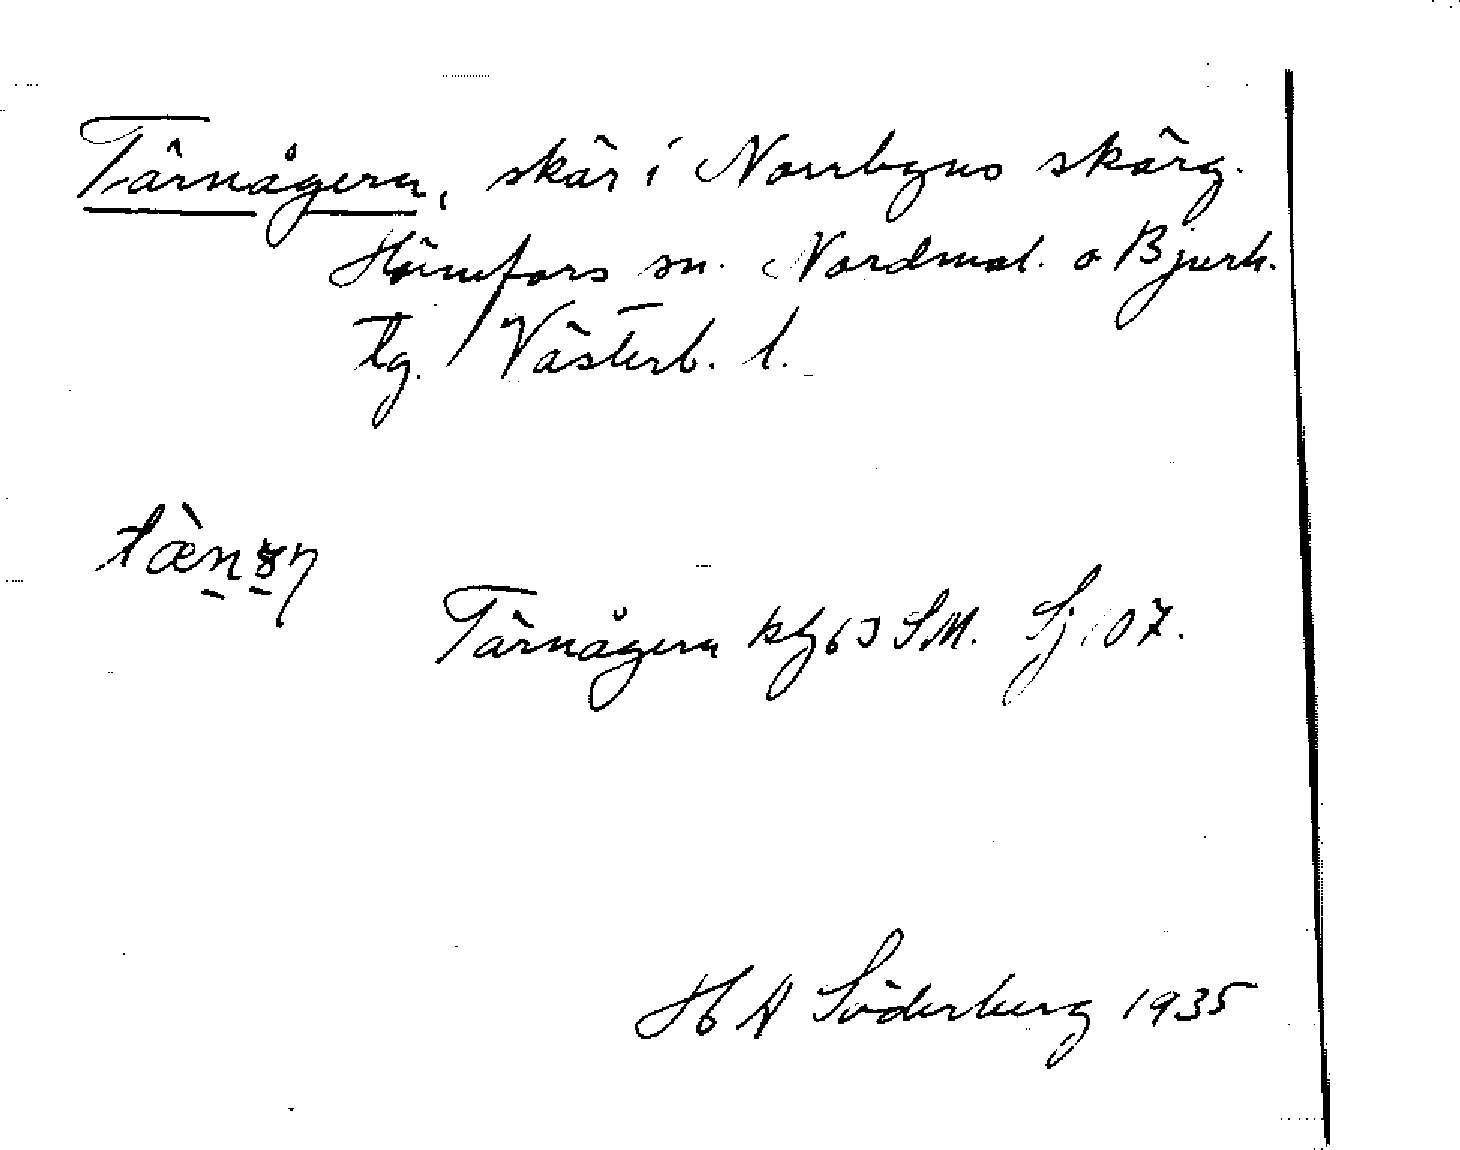 Tärnågern, skär i Norrbyns skärg.
Hörnefors sn. Nordmal. o Bjurh.
tg. Västerb. l.
Tärnågern 63 SM. Sj 07.
H A Söderberg 1935